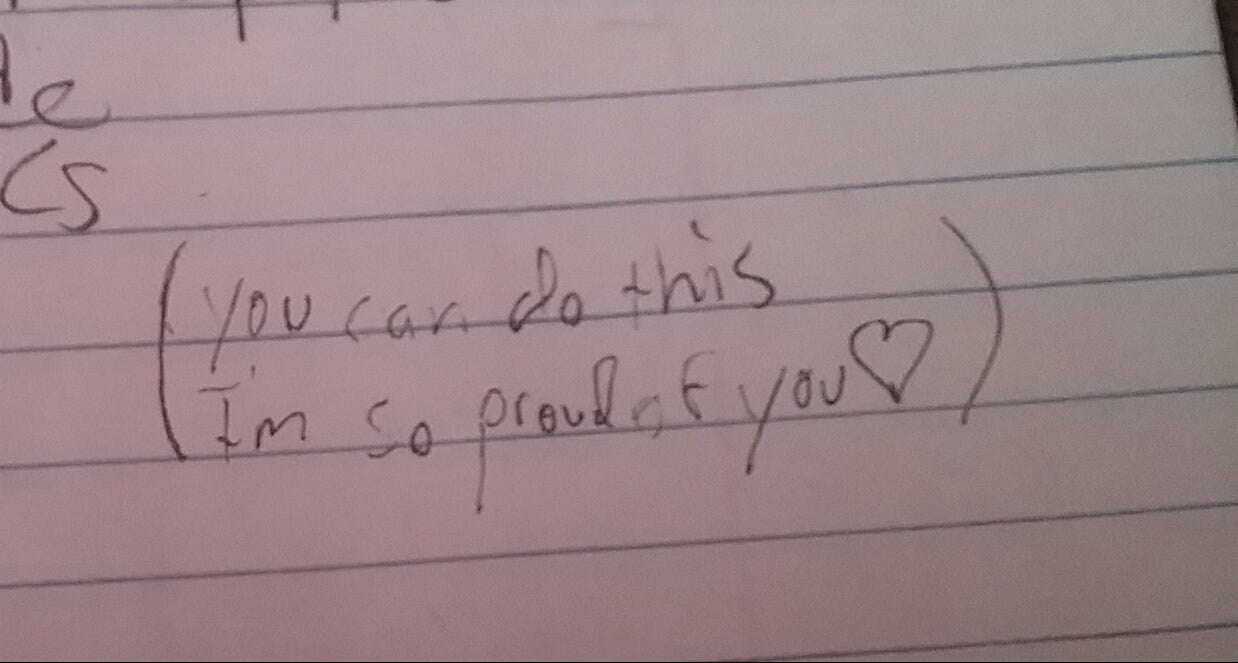 e
cs
(you can do this
I'm so proud of you♡)